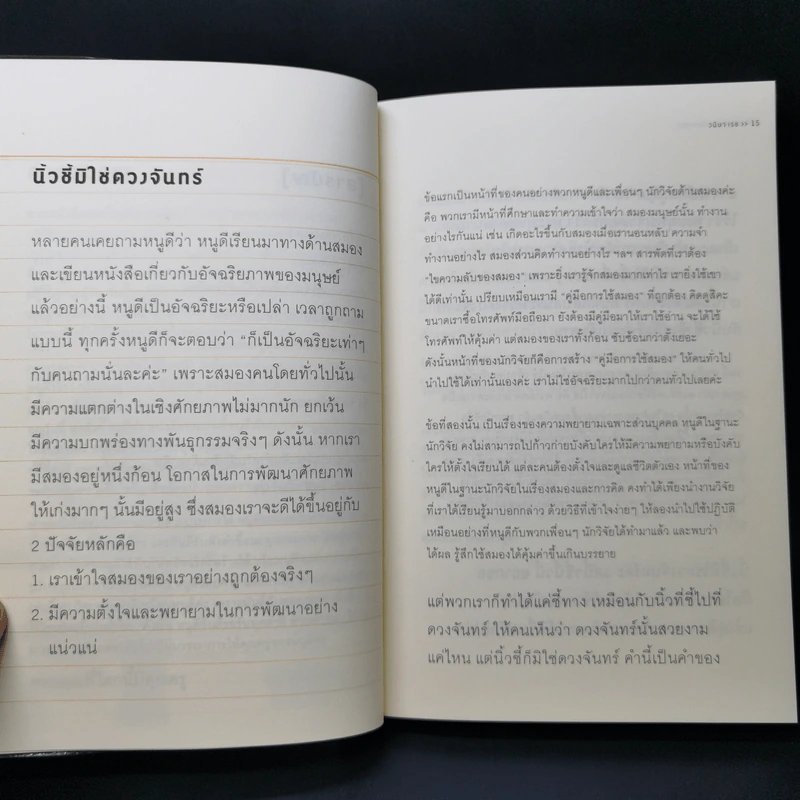 นิ้วชี้มิใช่ดวงจันทร์
หลายคนเคยถามหนูดีว่า หนูดีเรียนมาทางด้านสมอง
และเขียนหนังสือเกี่ยวกับอัจฉริยภาพของมนุษย์
แล้วอย่างนี้ หนูดีเป็นอัจฉริยะหรือเปล่า เวลาถูกถาม
แบบนี้ ทุกครั้งหนูดีก็จะตอบว่า “ก็เป็นอัจฉริยะเท่าๆ
กับคนถามนั่นละค่ะ” เพราะสมองคนโดยทั่วไปนั้น
มีความแตกต่างในเชิงศักยภาพไม่มากนัก ยกเว้น
มีความบกพร่องทางพันธุกรรมจริงๆ ดังนั้น หากเรา
มีสมองอยู่หนึ่งก้อน โอกาสในการพัฒนาศักยภาพ
ให้เก่งมากๆ นั้นมีอยู่สูง ซึ่งสมองเราจะดีได้ขึ้นอยู่กับ
2 ปัจจัยหลักคือ
1. เราเข้าใจสมองของเราอย่างถูกต้องจริงๆ
2. มีความตั้งใจและพยายามในการพัฒนาอย่าง
แน่วแน่
วนิษา เรซ >> 15
ข้อแรกเป็นหน้าที่ของคนอย่างพวกหนูดีและเพื่อนๆ นักวิจัยด้านสมองค่ะ
คือ พวกเรามีหน้าที่ศึกษาและทำความเข้าใจว่า สมองมนุษย์นั้น ทำงาน
อย่างไรกันแน่ เช่น เกิดอะไรขึ้นกับสมองเมื่อเรานอนหลับ ความจำ
ทำงานอย่างไร สมองส่วนคิดทำงานอย่างไร ฯลฯ สารพัดที่เราต้อง
“ไขความลับของสมอง” เพราะยิ่งเรารู้จักสมองมากเท่าไร เรายิ่งใช้เขา
ได้ดีเท่านั้น เปรียบเหมือนเรามี “คู่มือการใช้สมอง” ที่ถูกต้อง คิดดูสิคะ
ขนาดเราซื้อโทรศัพท์มือถือมา ยังต้องมีคู่มือมาให้เราใช้อ่าน จะได้ใช้
โทรศัพท์ให้คุ้มค่า แต่สมองของเราทั้งก้อน ซับซ้อนกว่าตั้งเยอะ
ดังนั้นหน้าที่ของนักวิจัยก็คือการสร้าง “คู่มือการใช้สมอง” ให้คนทั่วไป
นำไปใช้ได้เท่านั้นเองค่ะ เราไม่ใช่อัจฉริยะมากไปกว่าคนทั่วไปเลยค่ะ
ข้อที่สองนั้น เป็นเรื่องของความพยายามเฉพาะส่วนบุคคล หนูดีในฐานะ
นักวิจัย คงไม่สามารถไปก้าวก่ายบังคับใครให้มีความพยายามหรือบังคับ
ใครให้ตั้งใจเรียนได้ แต่ละคนต้องตั้งใจและดูแลชีวิตตัวเอง หน้าที่ของ
หนูดีในฐานะนักวิจัยในเรื่องสมองและการคิด คงทำได้เพียงนำงานวิจัย
ที่เราได้เรียนรู้มาบอกกล่าว ด้วยวิธีที่เข้าใจง่ายๆ ให้ลองนำไปใช้ปฏิบัติ
เหมือนอย่างที่หนูดีกับพวกเพื่อนๆ นักวิจัยได้ทำมาแล้ว และพบว่า
ได้ผล รู้สึกใช้สมองได้คุ้มค่าขึ้นเกินบรรยาย
แต่พวกเราก็ทำได้แค่ชี้ทาง เหมือนกับนิ้วที่ชี้ไปที่
ดวงจันทร์ ให้คนเห็นว่า ดวงจันทร์นั้นสวยงาม
แค่ไหน แต่นิ้วชี้ก็มิใช่ดวงจันทร์ คำนี้เป็นคำของ